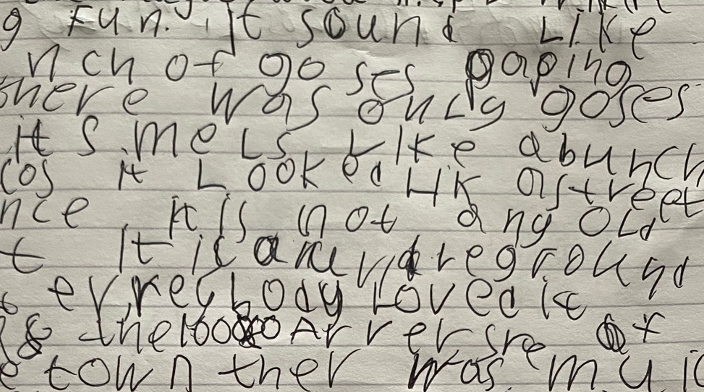 g fun. It sound Like
nch of goses paping
here was only goses
it smels Like abunch
cos it Looked Lik astreet
nce it is not any old
t It is an undreground
evreybody Loved it
the 1000 Arversre of
town ther was music